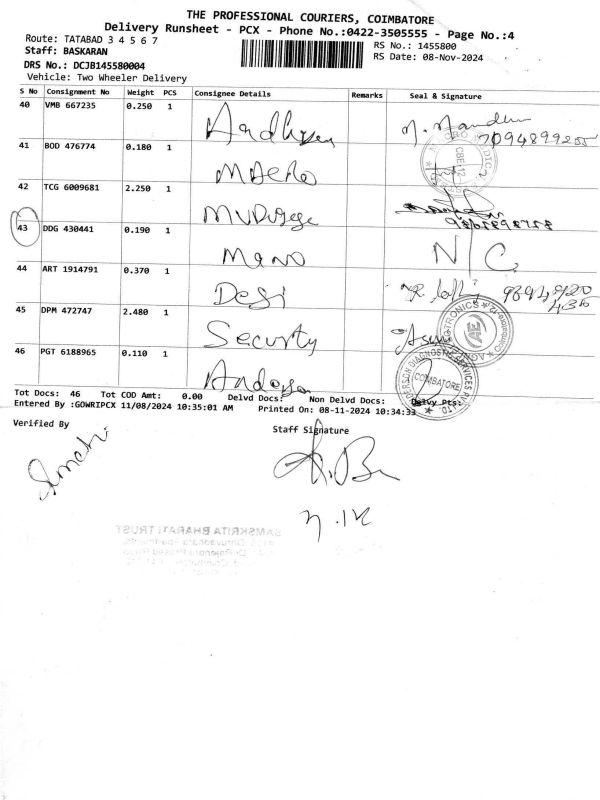 THE PROFESSIONAL COURIERS, COIMBATORE
Delivery Runsheet - PCX - Phone No.:0422-3505555 - Page No.:4
Route: TATABAD 3 4 5 6 7
RS No.: 1455800
Staff: BASKARAN
RS Date: 08-Nov-2024
DRS No.: DCJB145580004
Vehicle: Two Wheeler Delivery
S No Consignment No Weight PCS Consignee Details Remarks Seal & Signature
40 VMB 667235 0.250 1
7094899255
41 BOD 476774 0.180 1
42 TCG 6009681 2.250 1
43 DDG 430441 0.190 1 Mano N/C
44 ART 1914791 0.370 1 Desi
45 DPM 472747 2.480 1 Security
46 PGT 6188965 0.110 1
COIMBATORE
Tot Docs: 46 Tot COD Amt: 0.00 Delvd Docs: Non Delvd Docs: Delvy Pts:
Entered By :GOWRIPCX 11/08/2024 10:35:01 AM Printed On: 08-11-2024 10:34:33
Verified By
Staff Signature
SAMSKRITA BHARATI TRUST